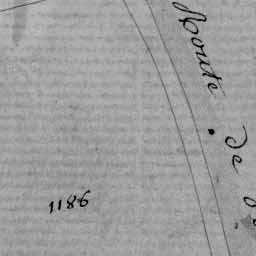 Route de
1186